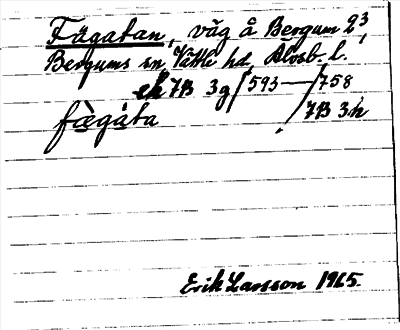 Fägatan, väg å Bergum 2³,
Bergums sn Vättle hd, Älvsb. l.
ek 7B 3g/593—/758
fä̀gàta /7B 3h
Erik Larsson 1965.